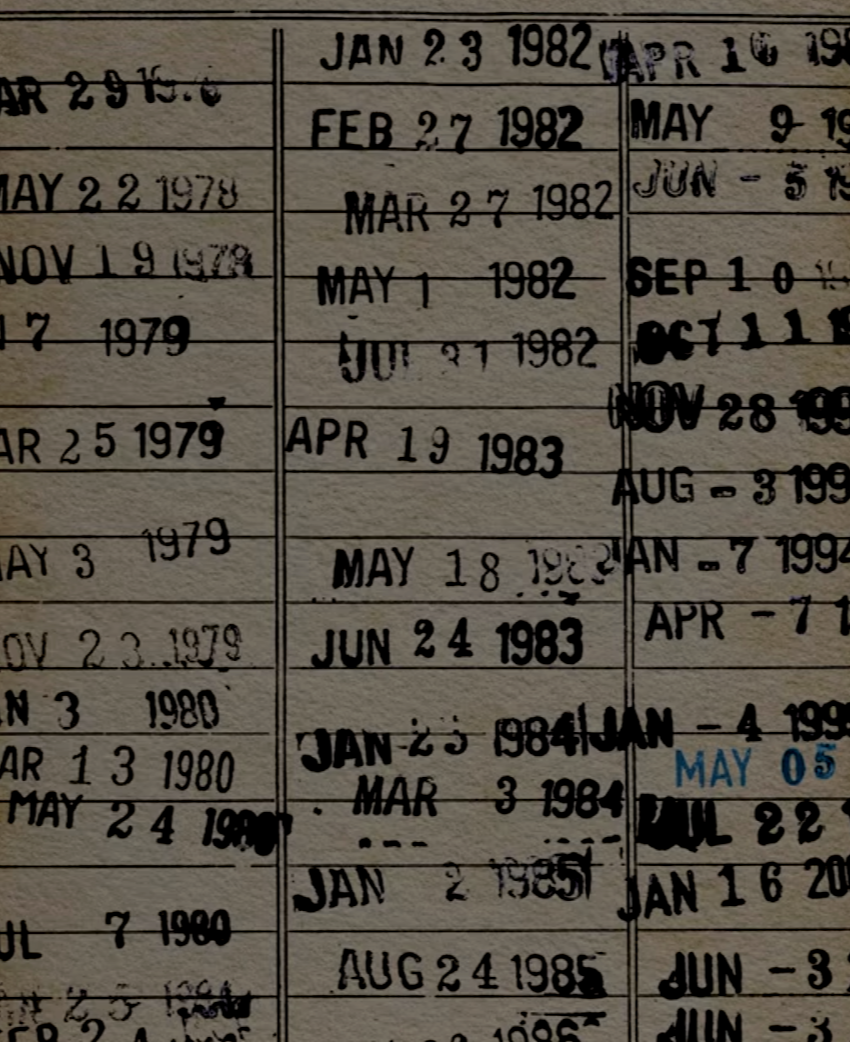 AR 29
MAY 22 1978
NOV 19 1978
17 1979
AR 25 1979
AY 3 1979
OV 23 1979
N 3 1980
AR 13 1980
MAY 24
UL 7 1980
JAN 23 1982
FEB 27 1982
MAR 27 1982
MAY 1 1982
JUL 31 1982
APR 19 1983
MAY 18
JUN 24 1983
JAN 1984
MAR 3 1984
JAN 2 1985
AUG 24 1985
APR
MAY 9 19
JUN - 5 19
SEP 10
OCT 11
NOV 28 199
AUG - 3 199
AN - 7 1994
APR - 7 1
JAN - 4 199
MAY 05
JUL 22
JAN 16 20
JUN - 3
JUN - 3